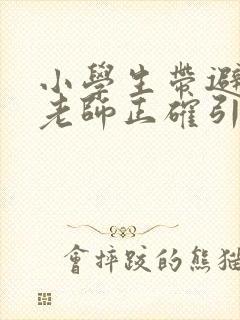 小學生帶避
老師正確引
會摔跤的熊猫